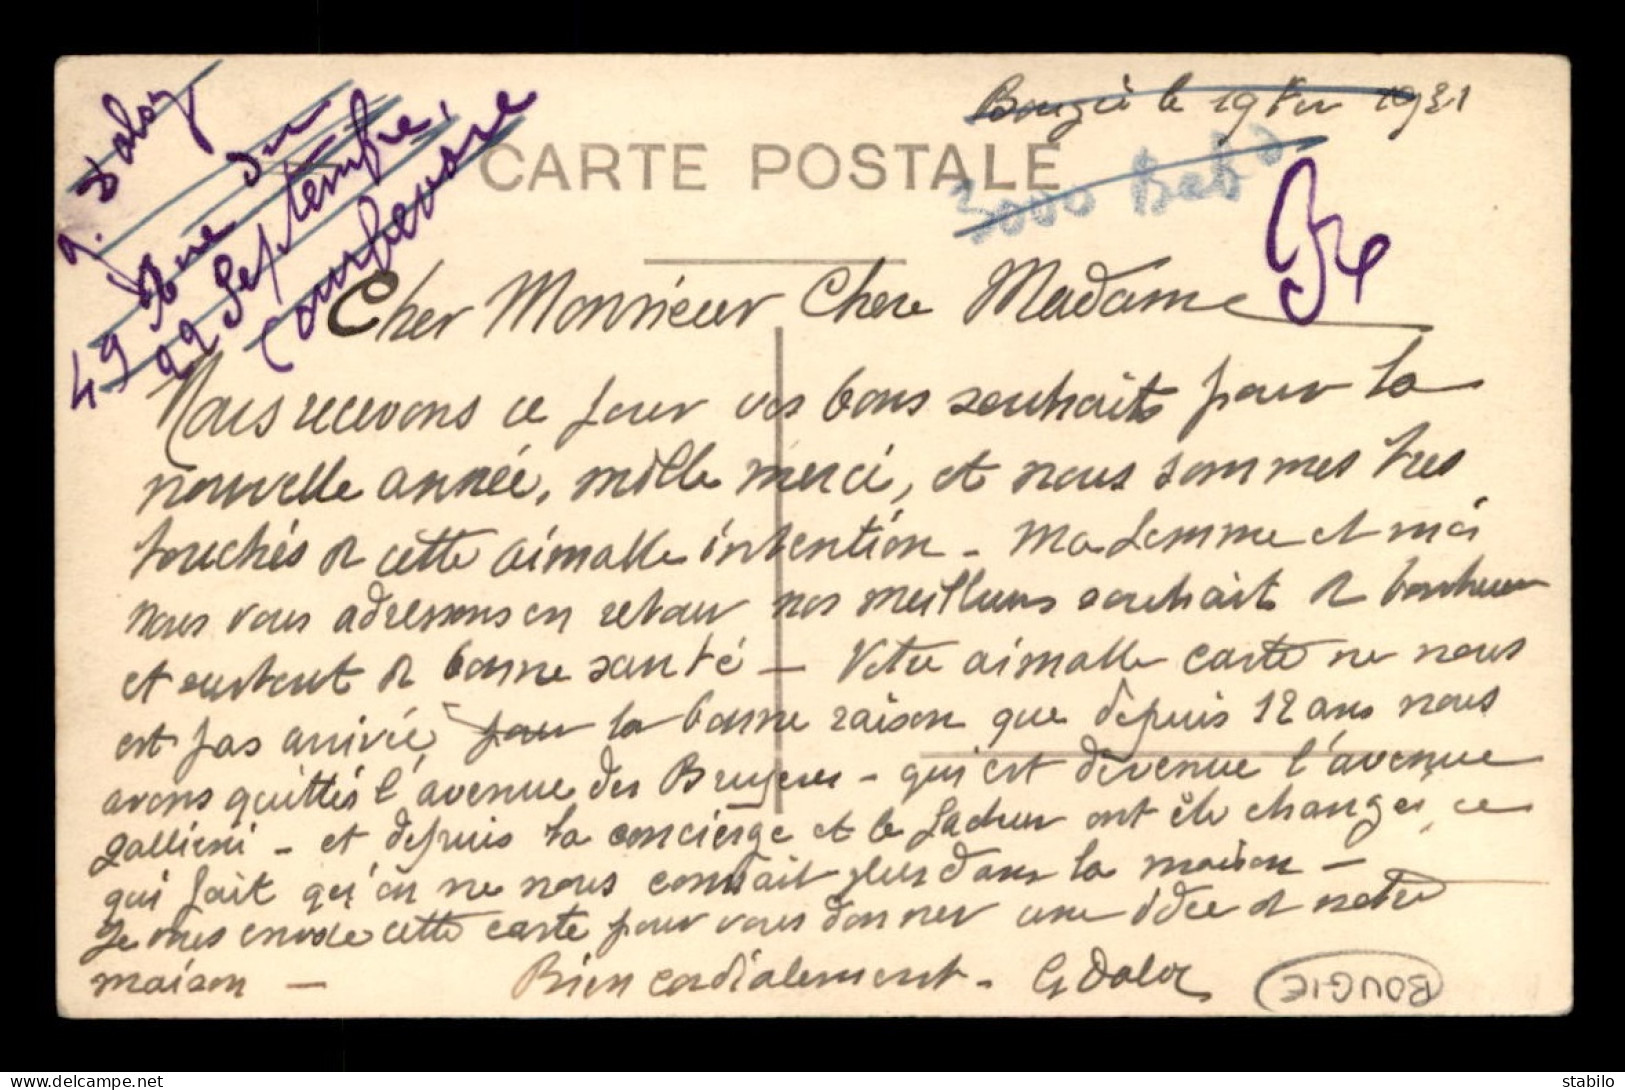 Bougie le 19 Fev 1931
G. Daloz
49 Rue du
22 Septembre,
Courbevoie
CARTE POSTALE
3000 Bab
Cher Monsieur Chere Madame
Nous recevons ce jour vos bons souhaits pour la
nouvelle année, mille merci, et nous sommes tres
touchés de cette aimable intention - Ma femme et moi
nous vous adressons en retour nos meilleurs souhaits de bonheur
et surtout de bonne santé - Votre aimable carte ne nous
est pas arrivée, pour la bonne raison que depuis 12 ans nous
avons quittés l'avenue des Bruyeres - qui est devenue l'avenue
gallieni - et depuis la concierge et le facteur ont été changés, ce
qui fait qu'on ne nous connait plus dans la maison -
Je vous envoie cette carte pour vous donner une idée de notre
maison - Bien cordialement - G Daloz
BOUGIE
delcampe.net
stabilo